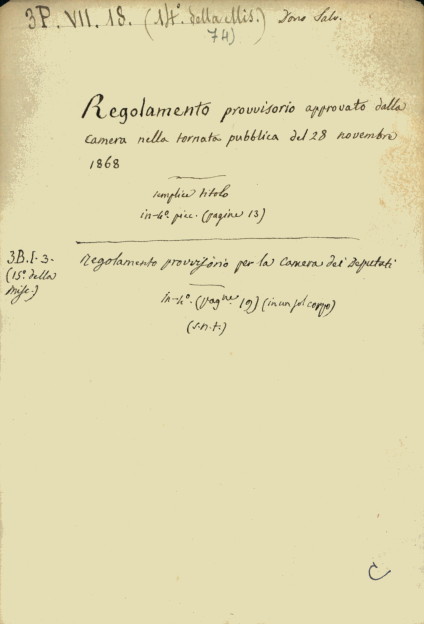 3P. VII. 18. (14ª della Mis. 74) Dono Salv.
Regolamento provvisorio approvato dalla
Camera nella tornata pubblica del 28 novembre
1868
semplice titolo
in-4º picc. (pagine 13)
3B.I.3. Regolamento provvisorio per la Camera dei Deputati
(15ª della
Misc.)
in-4º. (pagne. 19) (in un sol corpo)
(s.n.t.)
C